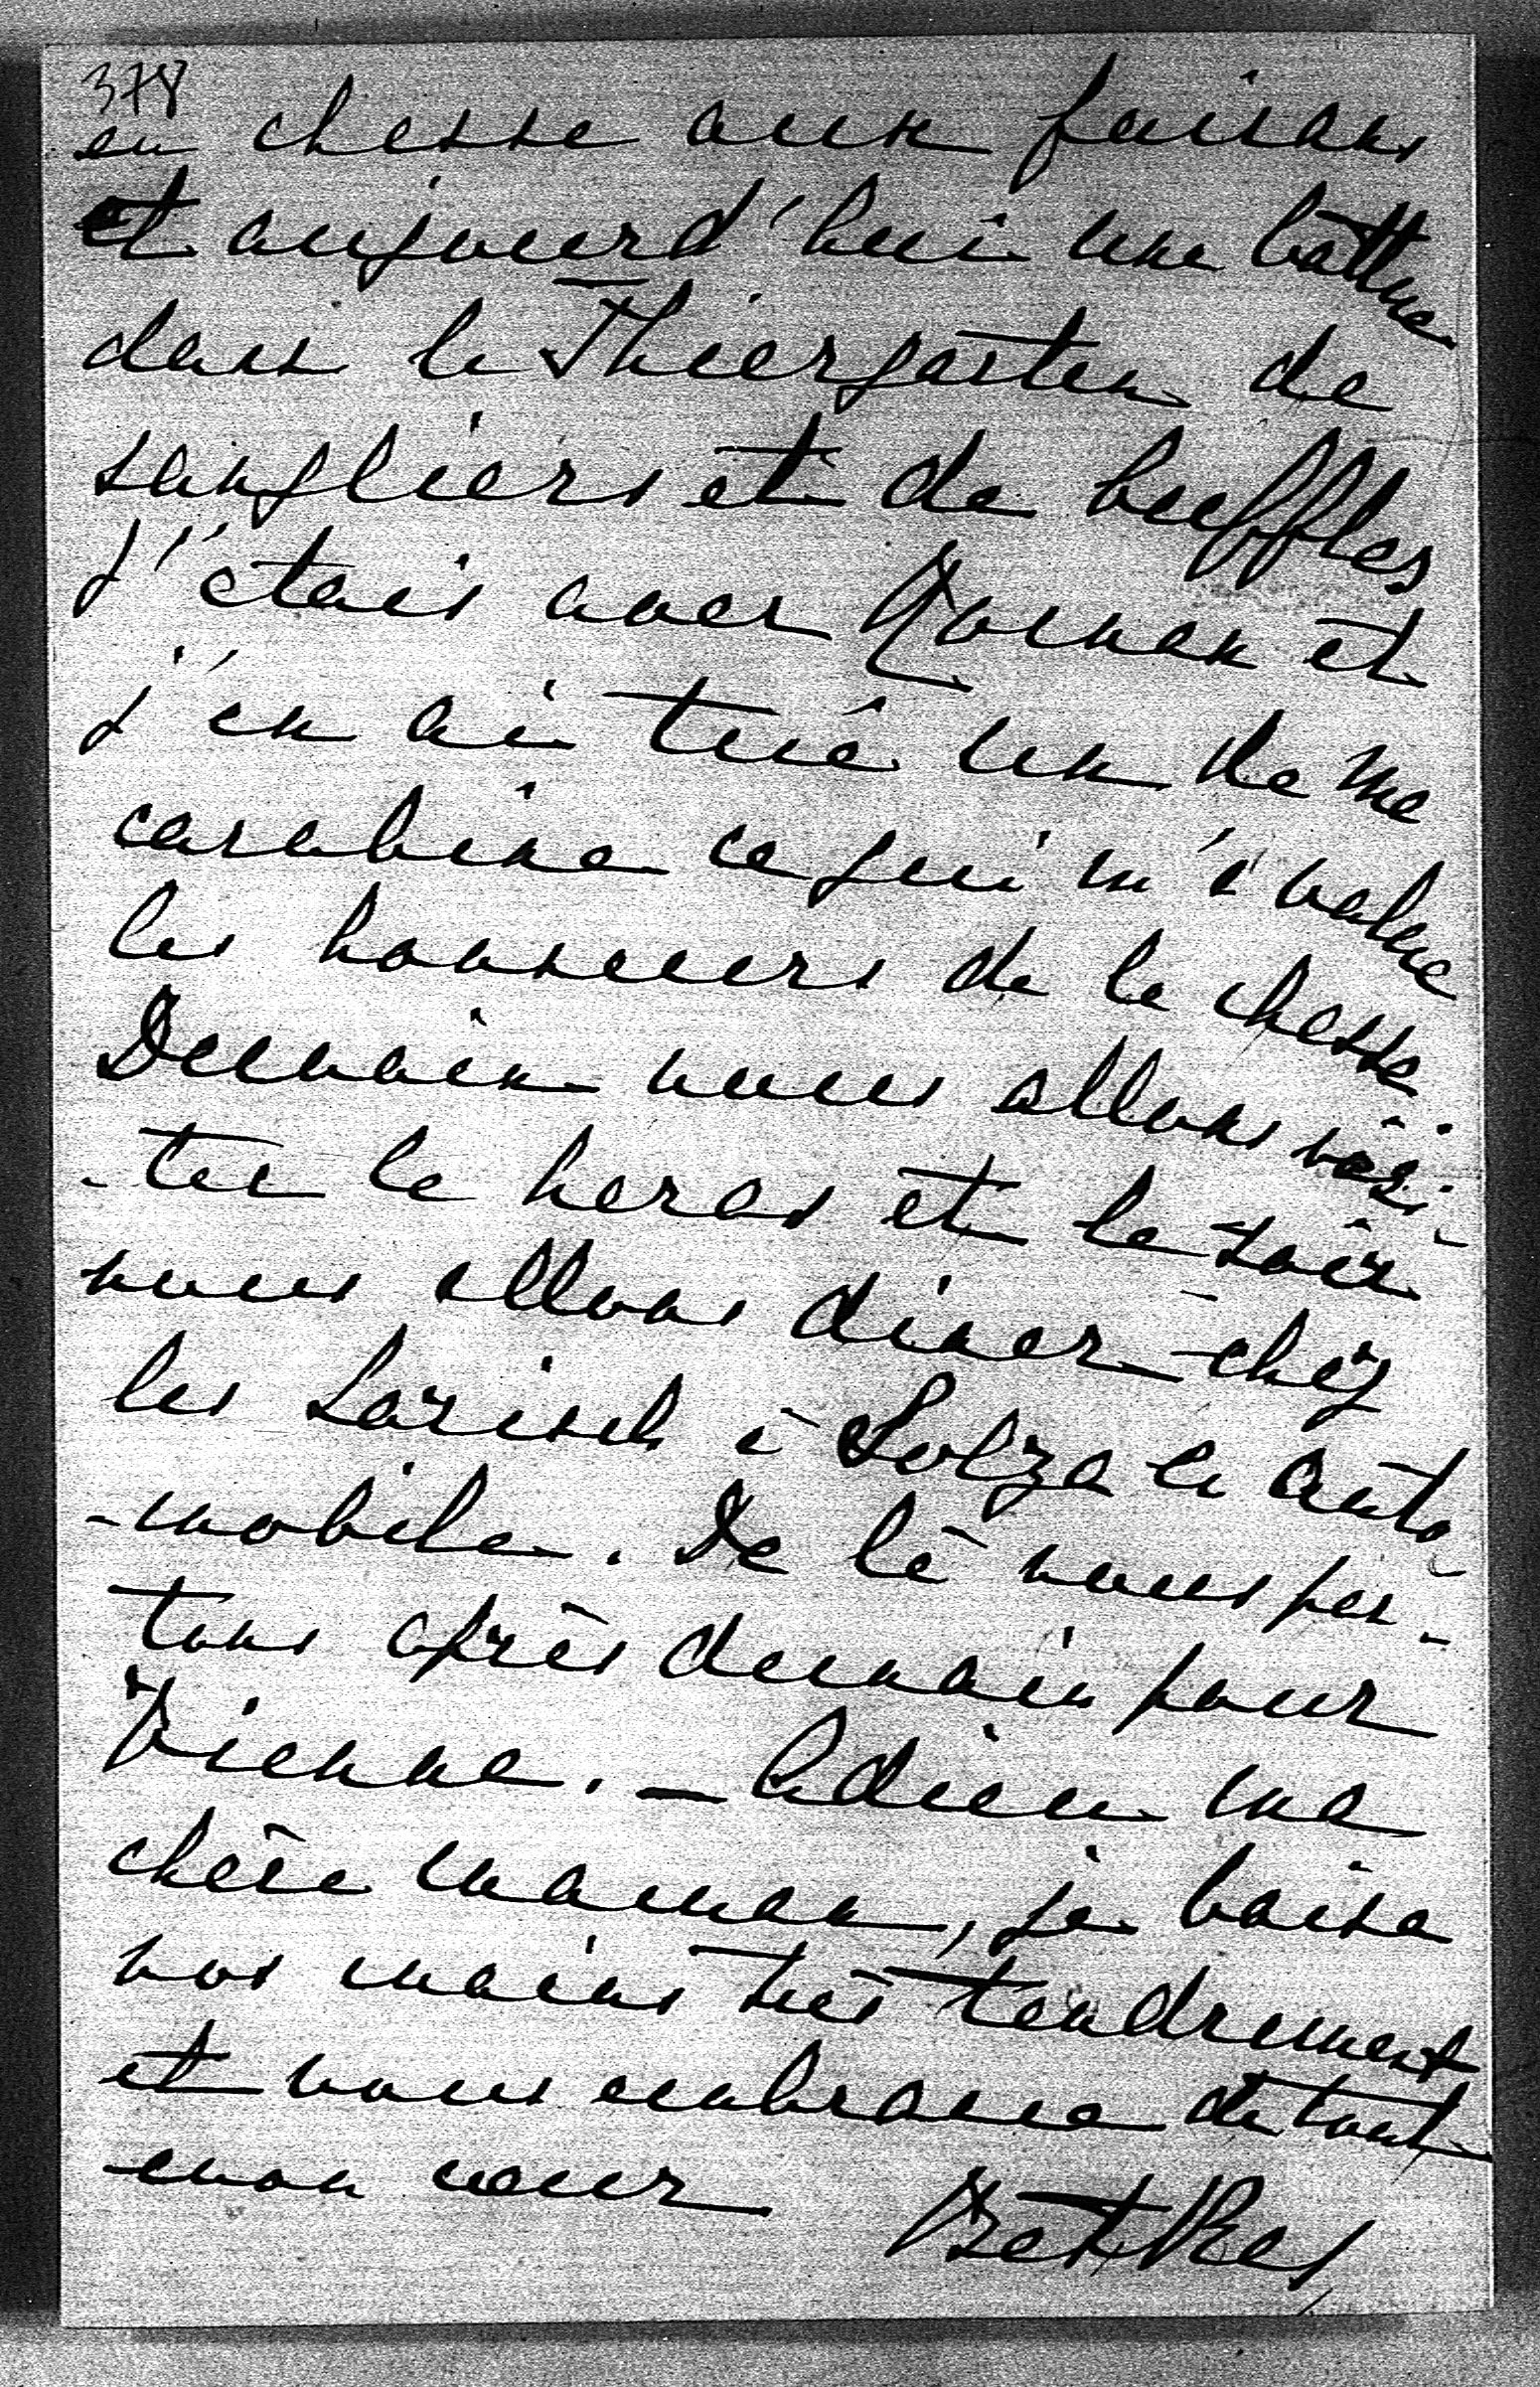 378
en chasse aux faisans
et aujourd'hui une battue
dans le Thiergarten de
sangliers et de buffles
J'étais avec Roman et
j'en ai tué un de ma
carabine ce qui m'a value
les honneurs de la chasse
Demain nous allons visi-
-ter le haras et le soir
nous allons diner chez
les Larisch à Solza en auto-
-mobile. De là nous par-
tons après demain pour
Vienne. — Adieu ma
chère maman, je baise
vos mains très tendrement
et vous embrasse de tout
mon cœur